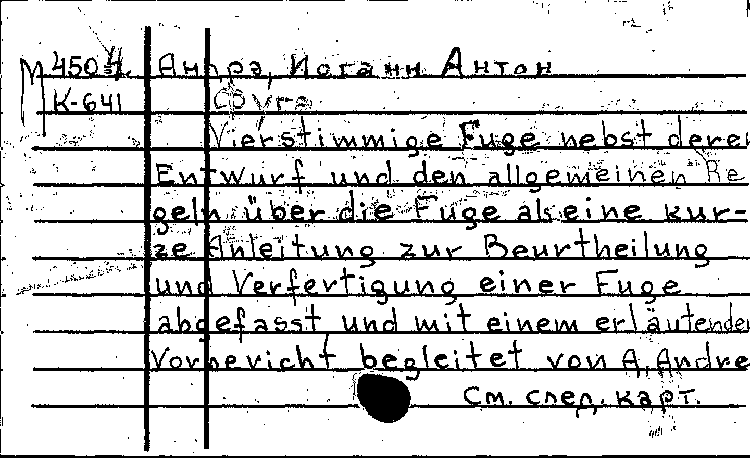 М 4504. Андрэ, Иоганн Антон
К-641 Фуга
Vierstimmige Fuge nebst deren
Entwurf und den allgemeinen Re
geln über die Fuge als eine kur-
ze Anleitung zur Beurtheilung
und Verfertigung einer Fuge
abgefasst und mit einem erläutenden
Vorbericht begleitet von A. Andre
См. след. карт.